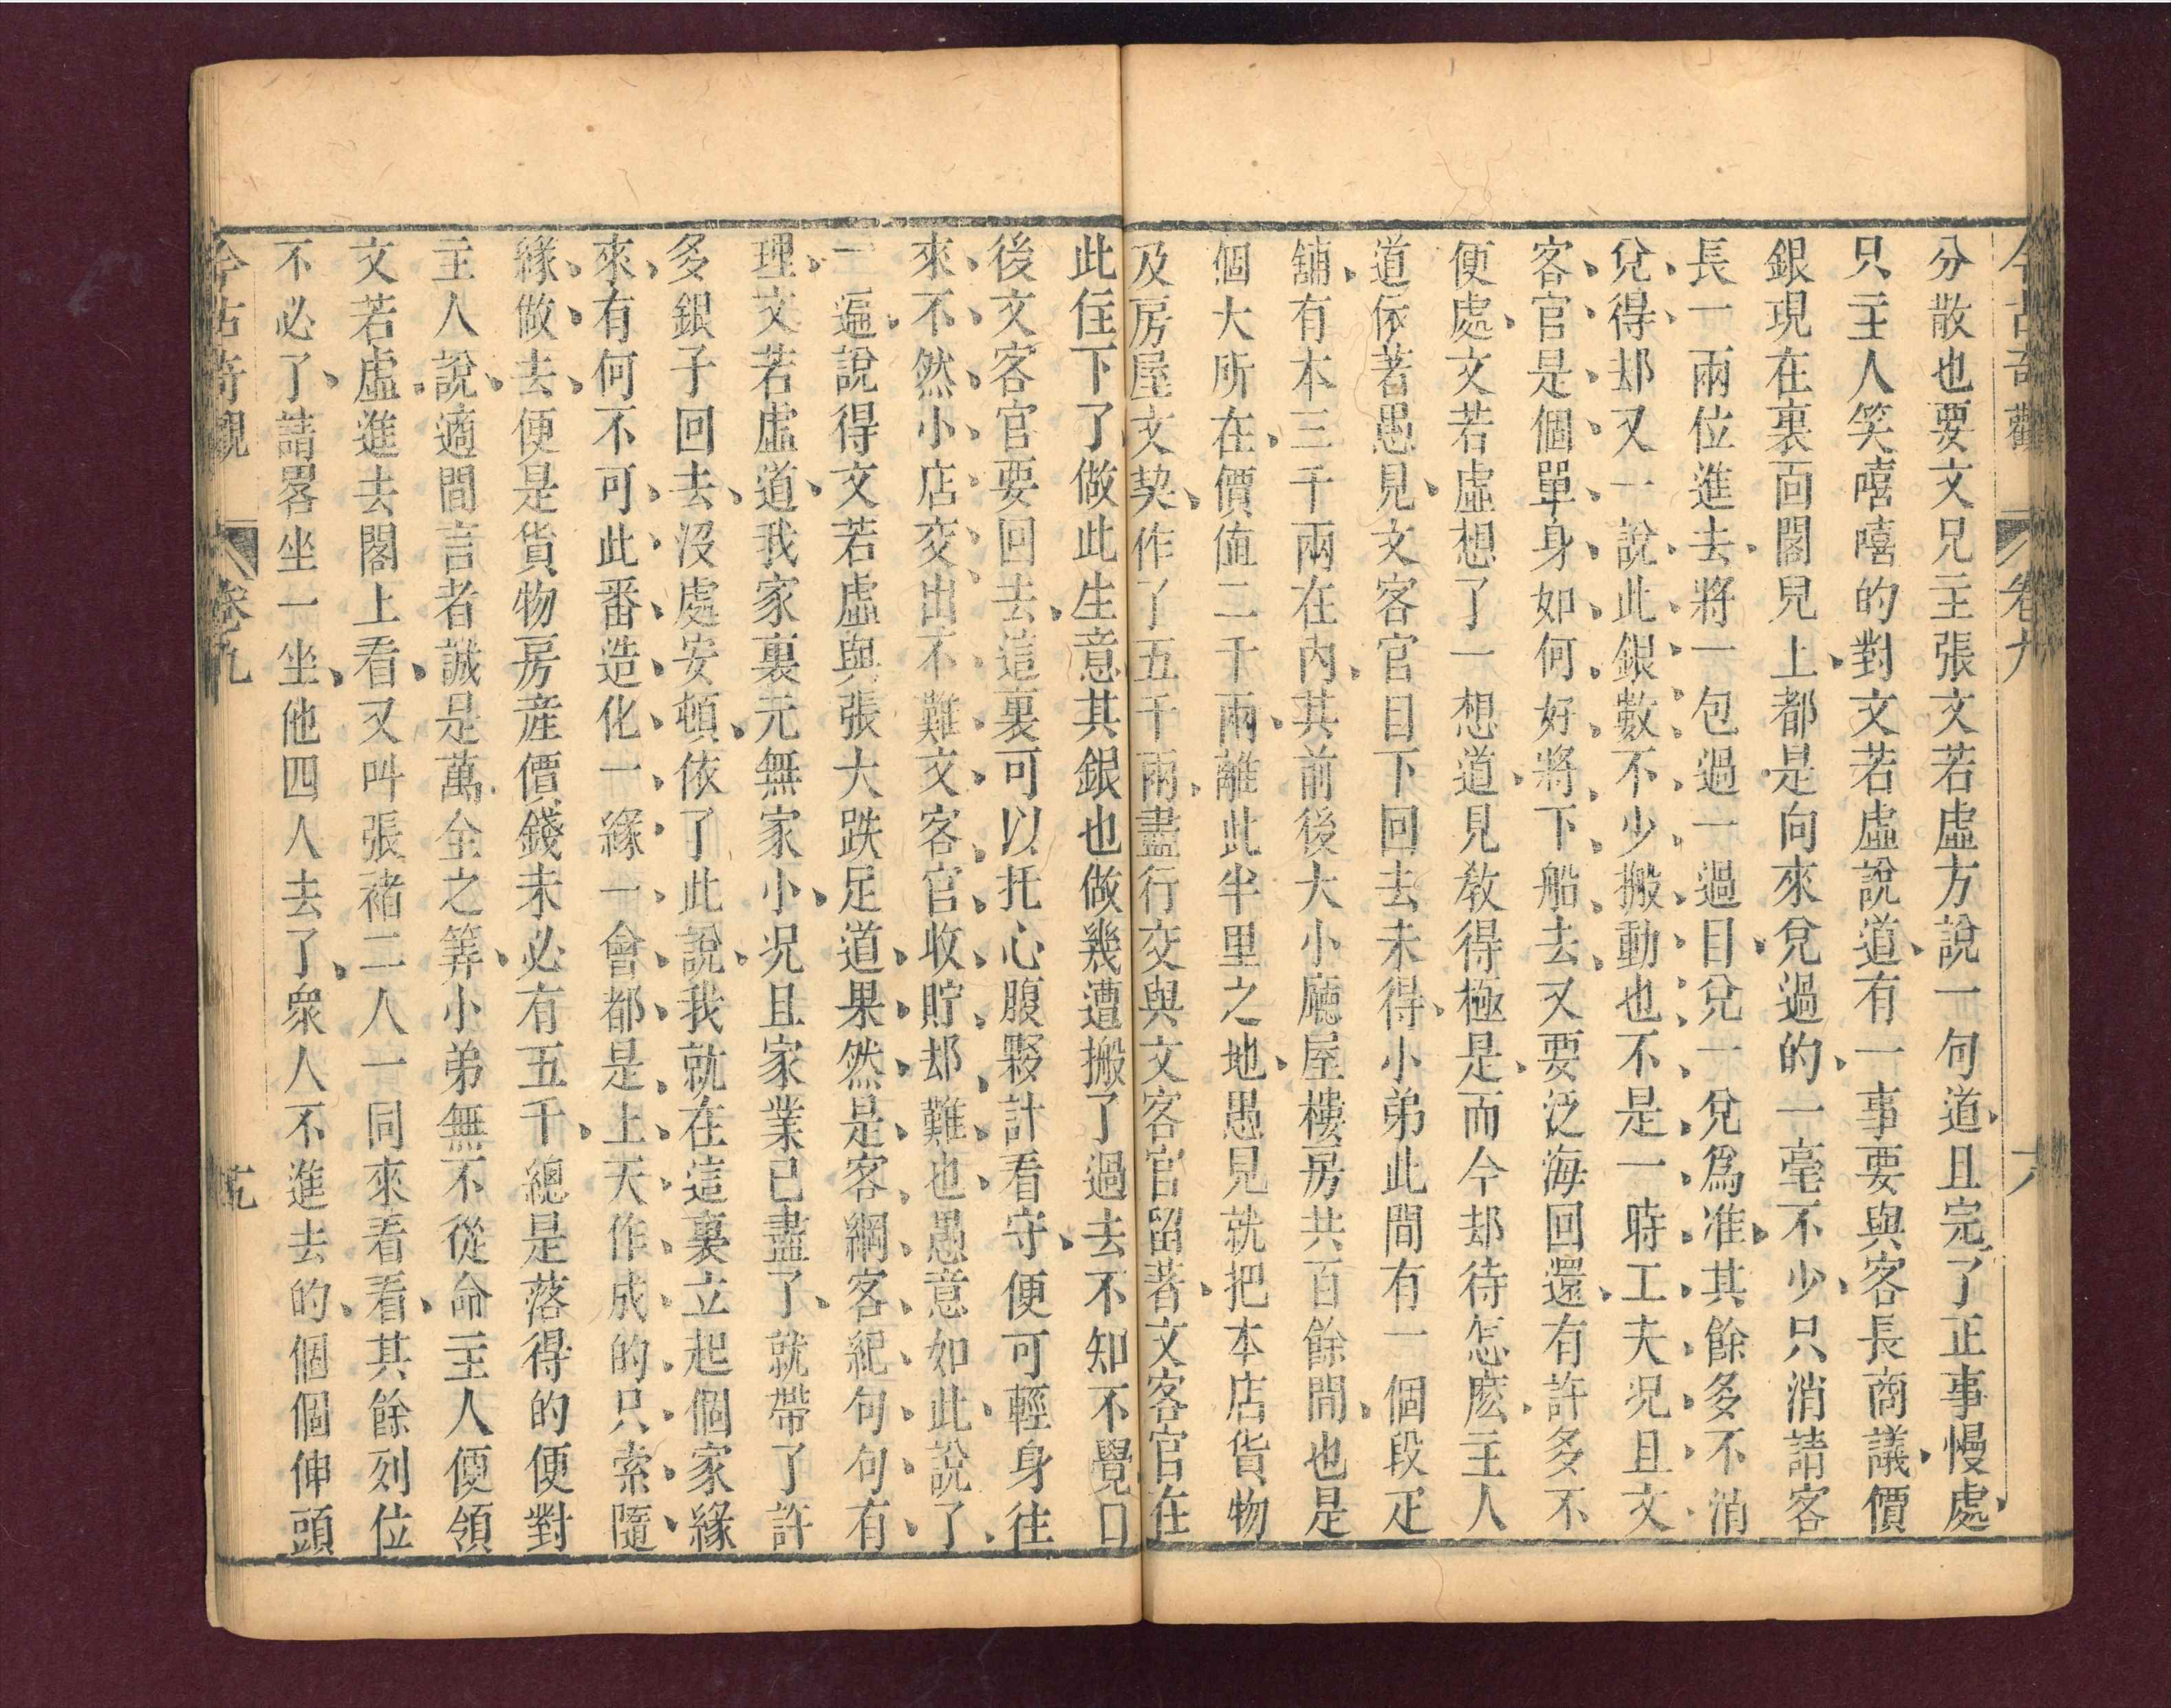 今古奇觀 卷九 六
分散也要文兄主張文若虛方說一句道且完了正事慢處
只主人笑嘻嘻的對文若虛說道有一事要與客長商議價
銀現在裏面閣兒上都是向來兌過的一毫不少只消請客
長一兩位進去將一包過一過目兌一兌爲准其餘多不消
兌得却又一說此銀數不少搬動也不是一時工夫况且文
客官是個單身如何好將下船去又要泛海回還有許多不
便處文若虛想了一想道見敎得極是而今却待怎麽主人
道依著愚見文客官目下回去未得小弟此間有一個段疋
舖有本三千兩在內其前後大小廳屋樓房共百餘間也是
個大所在價値二千兩離此半里之地愚見就把本店貨物
及房屋文契作了五千兩盡行交與文客官留著文客官在
此住下了做此生意其銀也做幾遭搬了過去不知不覺口
後文客官要回去這裏可以托心腹夥計看守便可輕身往
來不然小店交出不難文客官收貯却難也愚意如此說了
一遍說得文若虛與張大跌足道果然是客綱客紀句句有
理文若虛道我家裏元無家小况且家業已盡了就帶了許
多銀子回去沒處安頓依了此說我就在這裏立起個家緣
來有何不可此番造化一緣一會都是上天作成的只索隨
緣做去便是貨物房産價錢未必有五千總是落得的便對
主人說適間言者誠是萬全之筭小弟無不從命主人便領
文若虛進去閣上看又叫張褚二人一同來看看其餘列位
不必了請畧坐一坐他四人去了衆人不進去的個個伸頭
今古奇觀 卷九